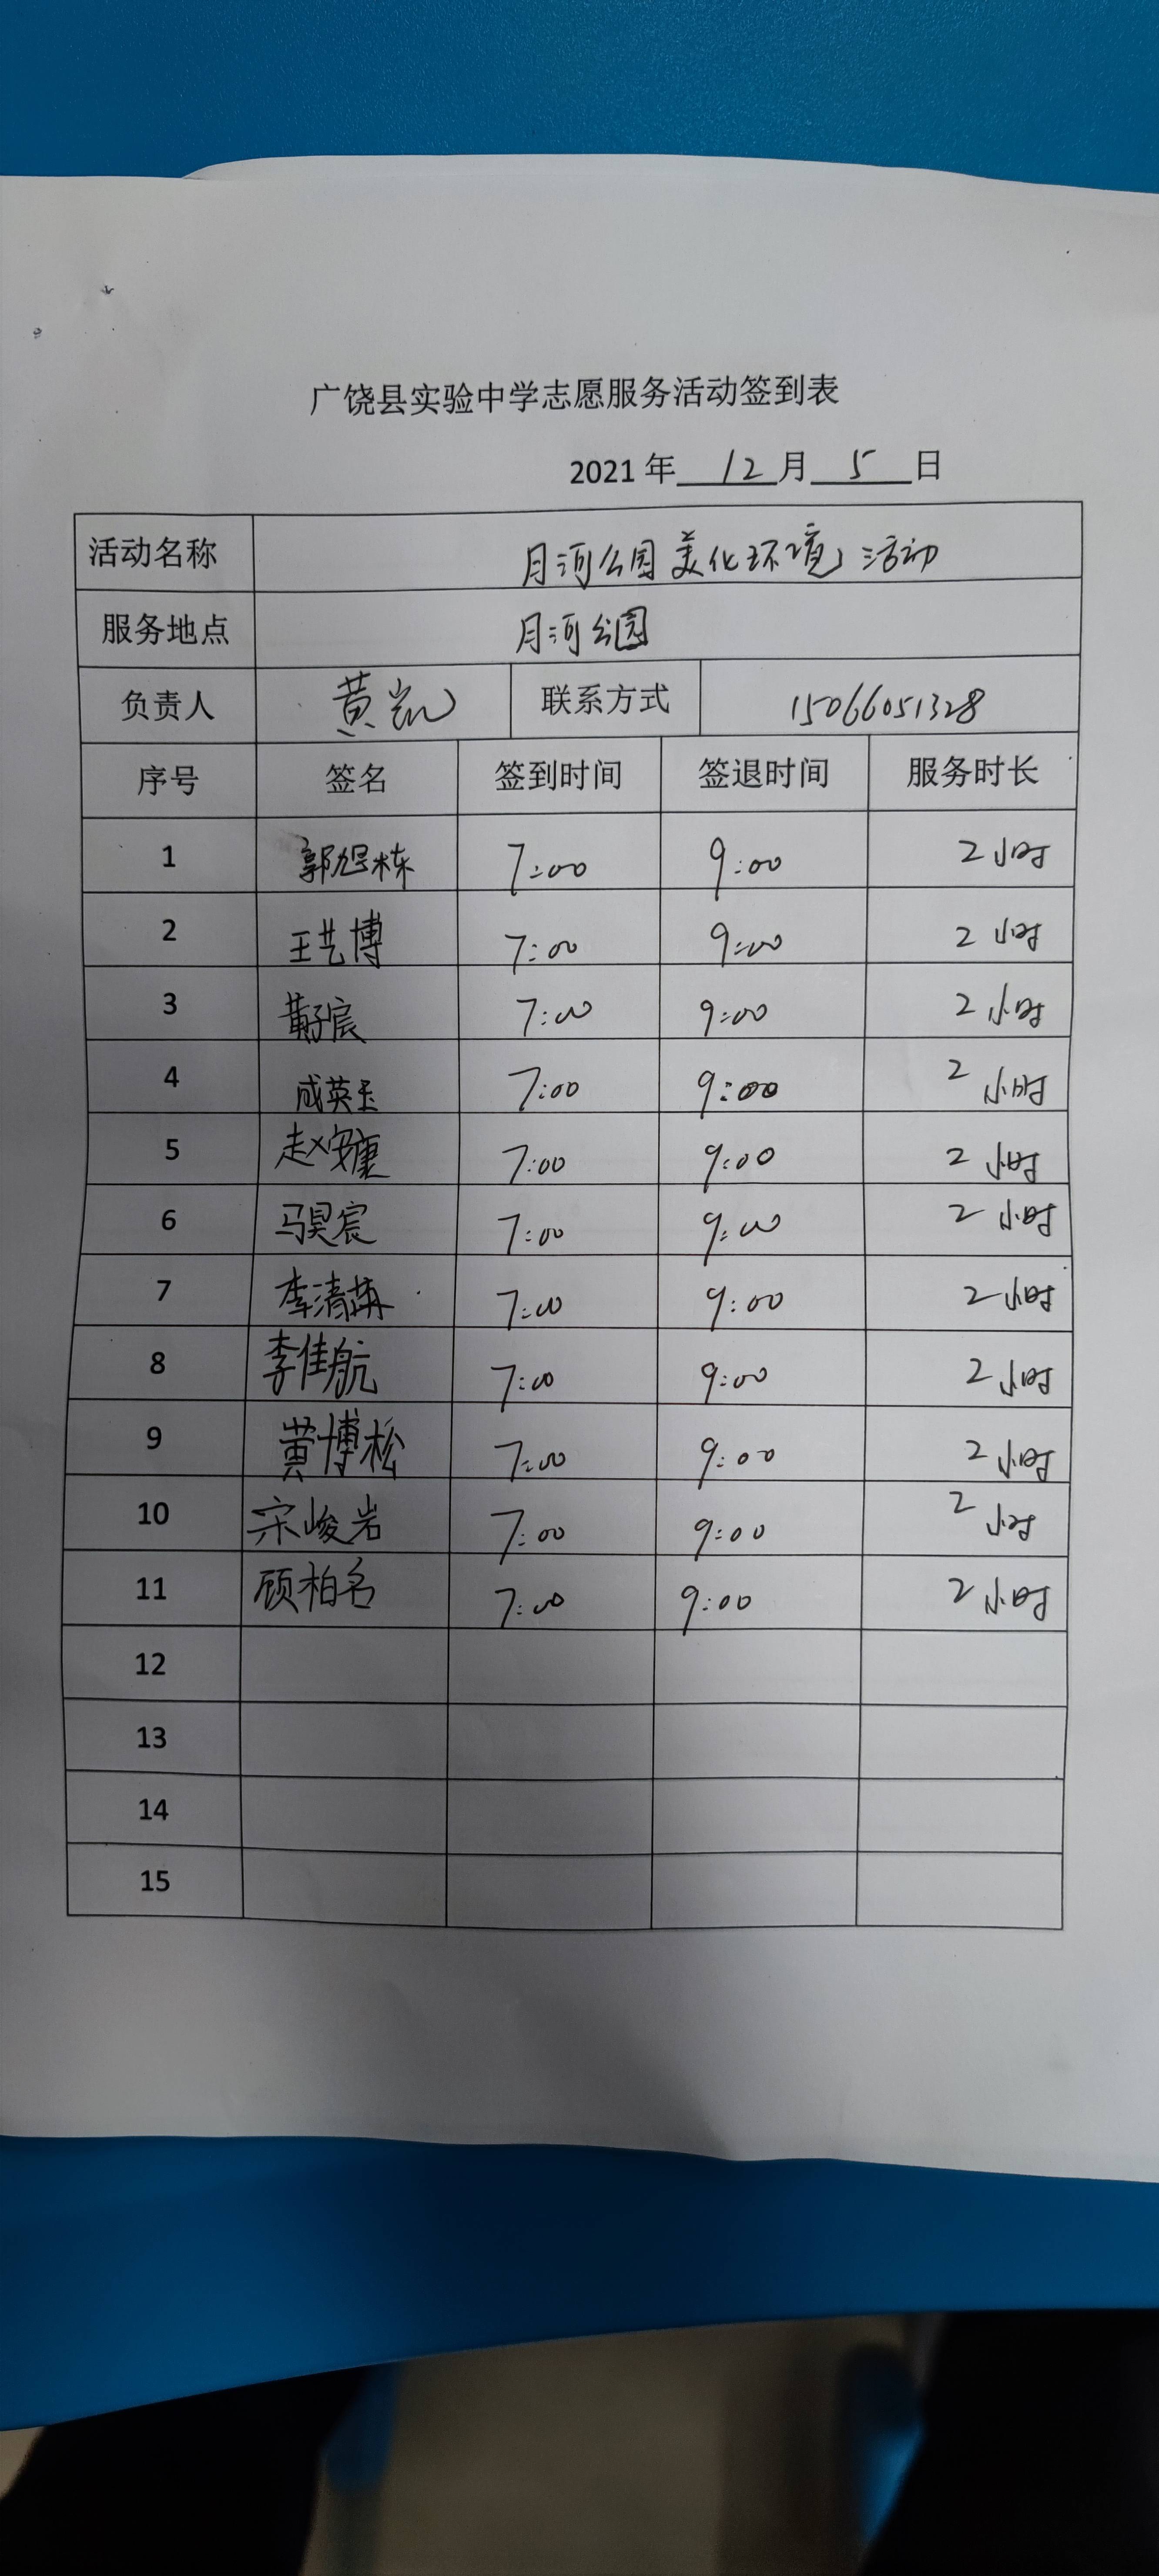 广饶县实验中学志愿服务活动签到表
2021 年 12 月 5 日
活动名称 月河公园美化环境活动
服务地点 月河公园
负责人 黄凯 联系方式 15066051328
序号 签名 签到时间 签退时间 服务时长
1 郭旭栋 7:00 9:00 2小时
2 王艺博 7:00 9:00 2小时
3 黄子宸 7:00 9:00 2小时
4 成英圭 7:00 9:00 2小时
5 赵安康 7:00 9:00 2小时
6 马昊宸 7:00 9:00 2小时
7 李清 7:00 9:00 2小时
8 李佳航 7:00 9:00 2小时
9 黄博松 7:00 9:00 2小时
10 宋峻岩 7:00 9:00 2小时
11 顾柏名 7:00 9:00 2小时
12
13
14
15